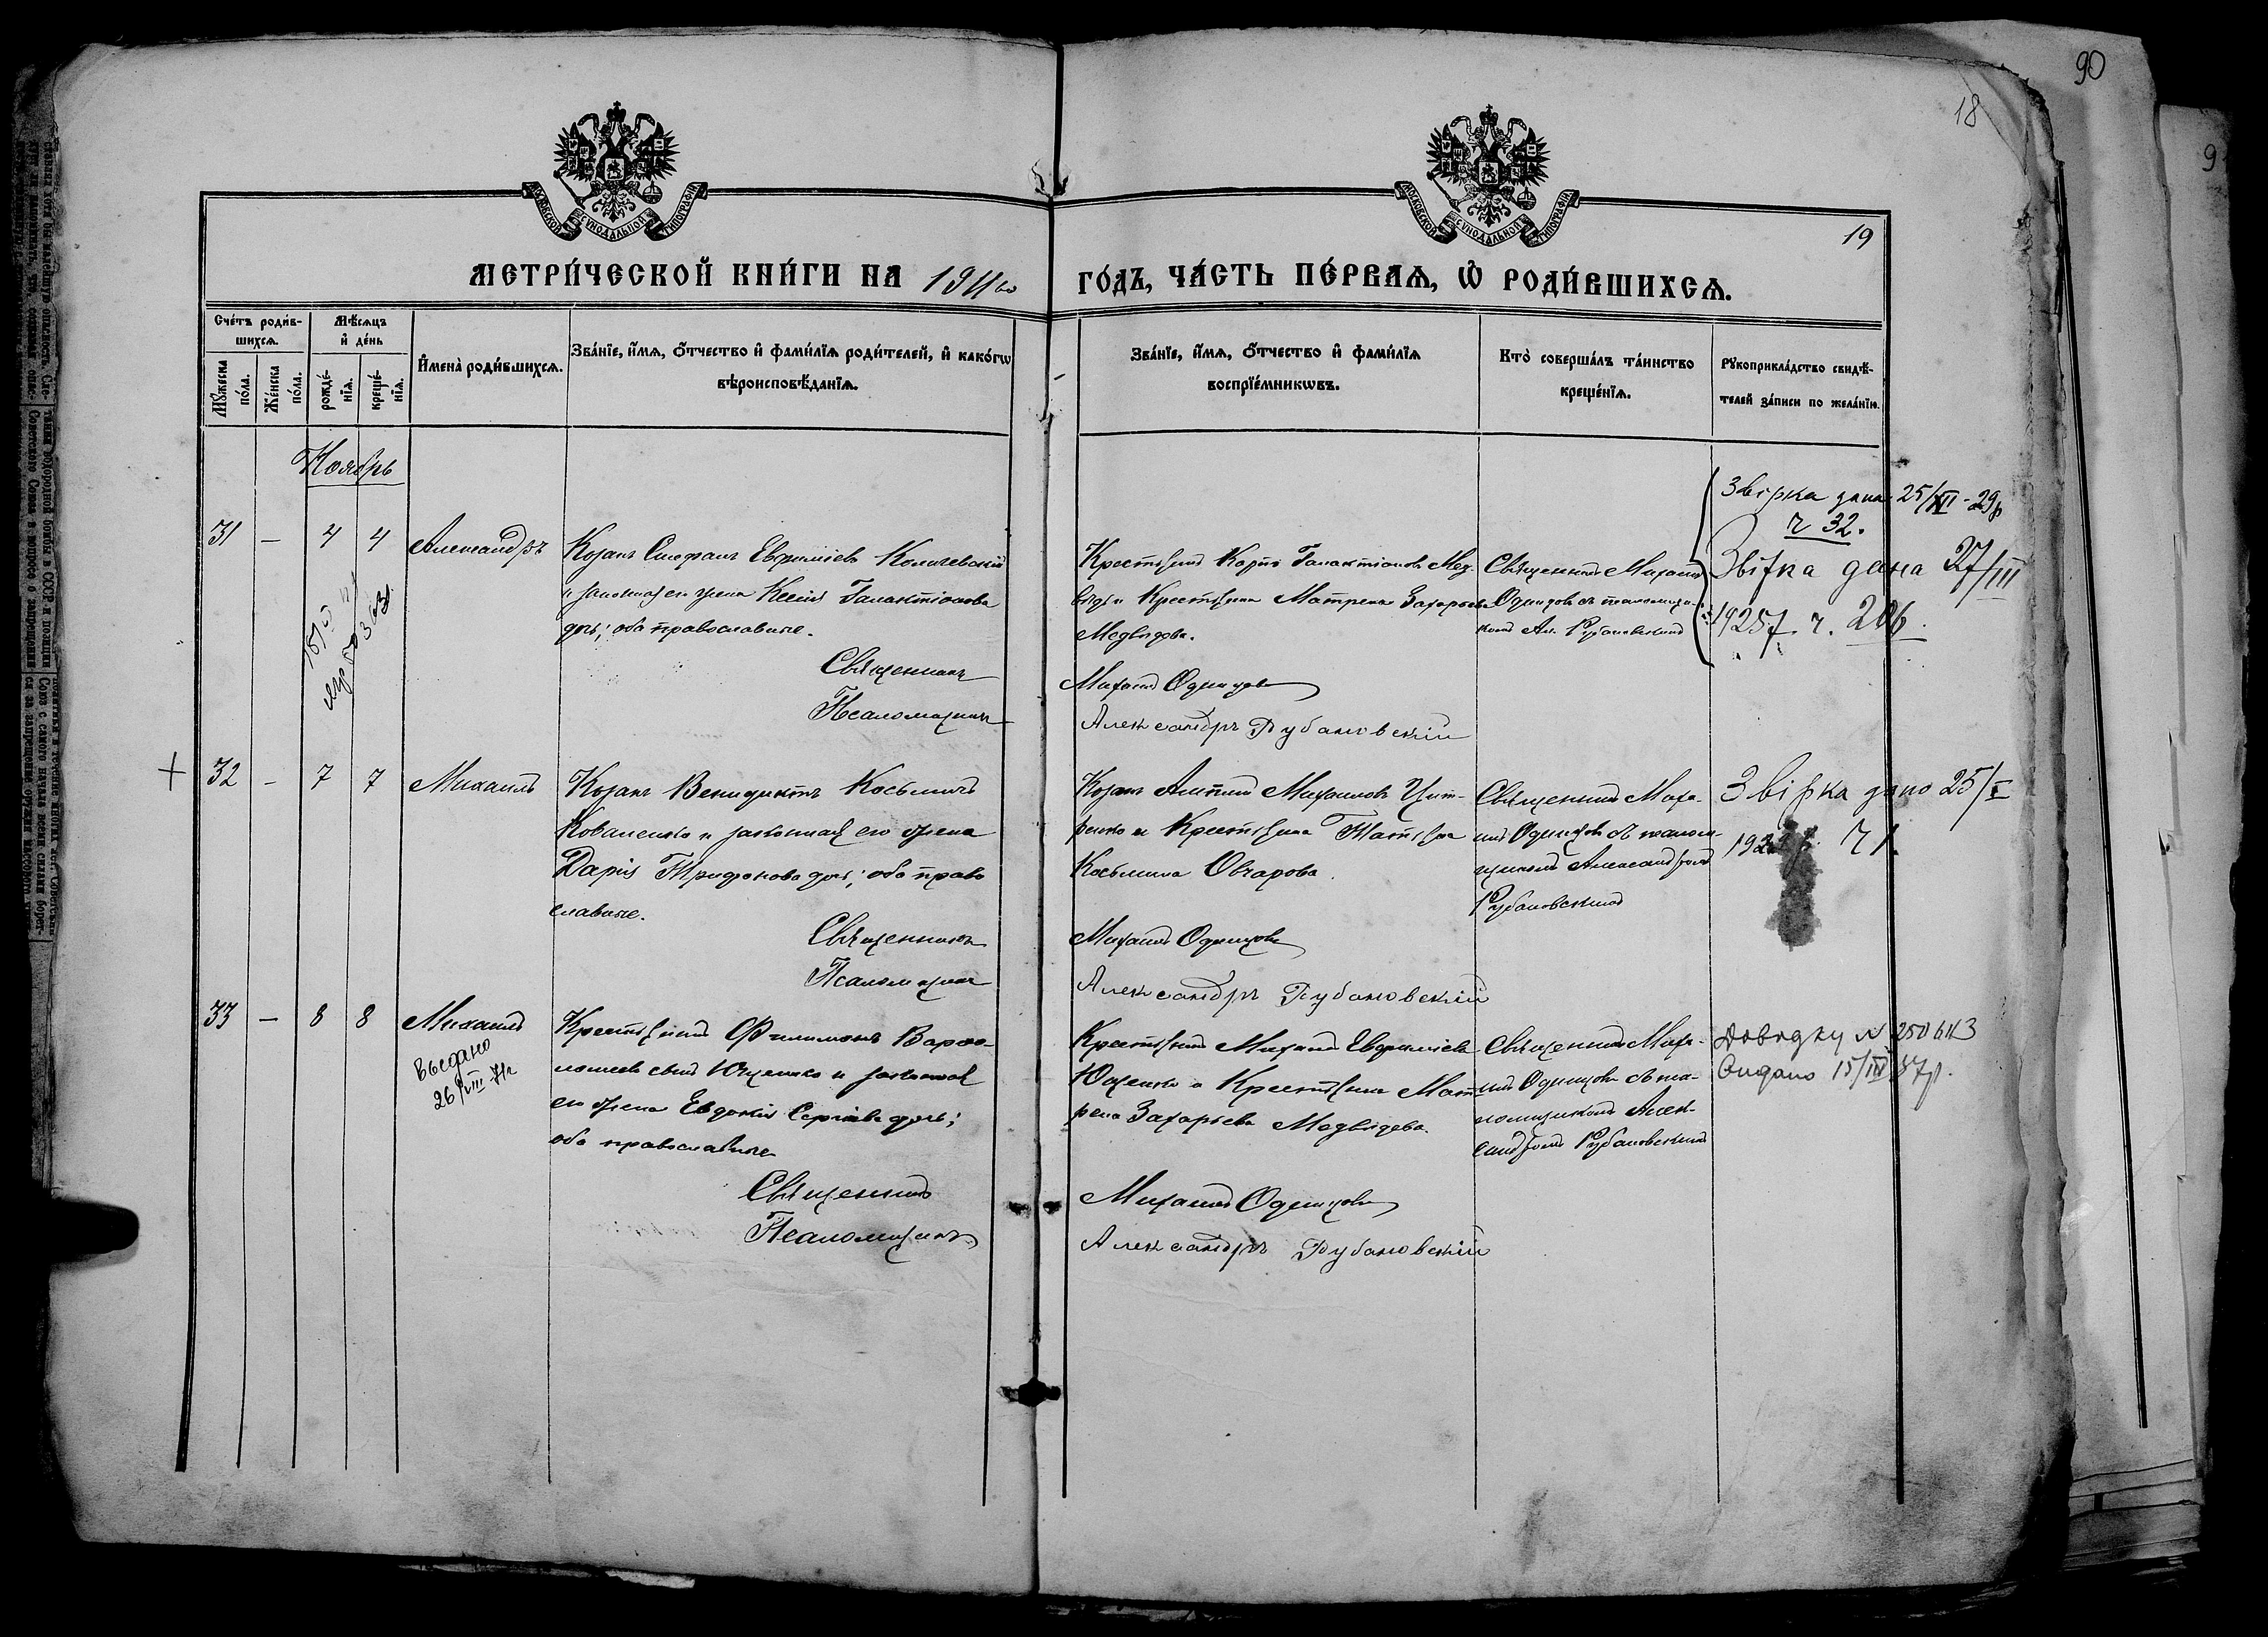 90
18
19
МОСКОВСКОЙ СУНОДАЛЬНОЙ ТИПОГРАФІИ
МОСКОВСКОЙ СУНОДАЛЬНОЙ ТИПОГРАФІИ
МЕТРИ́ЧЕСКОЙ КНИ́ГИ НА 1911го ГО́ДЪ, ЧА́СТЬ ПЕ́РВАЯ, Ѡ РОДИ́ВШИХСЯ.
Сче́тъ роди́в-
шихся.
Мѣ́сяцъ
и де́нь
Мꙋ́жеска
по́ла.
Же́нска
по́ла.
рожде́-
нїя.
креще́-
нїя.
Имена̀ роди́вшихся.
Зва́нїе, и́мя, ѻ́тчество и фами́лїя роди́телей, и како́гѡ
вѣроисповѣ́данїя.
Зва́нїе, и́мя, ѻ́тчество и фами́лїя
воспрїе́мникѡвъ.
Кто̀ соверша́лъ та́инство
креще́нїя.
Рꙋкоприкла́дство свидѣ́-
телей за́писи по жела́нїю.
Ноябрь
31 — 4 4 Александръ
Козакъ Стефанъ Евфиміевъ
и законная его жена Ксенія Галактіонова
дочь; оба православные.
Священникъ
Псаломщикъ
Крестьянинъ Карпъ Галактіоновъ Мед-
вѣдь и Крестьянка Матрена Захарьева
Медвѣдева.
Михаилъ Одинцовъ
Александръ Рубановскій
Священникъ Михаилъ
Одинцовъ съ псаломщи-
комъ Ал. Рубановскимъ
Звірка дана 25/XII - 29р
ч 32.
Звірка дана 27/III
1925р. ч. 206.
32 - 7 7 Михаилъ
Козакъ Венидиктъ Косьминъ
Коваленко и законная его жена
Дарія Трифонова дочь; оба право
славные.
Священникъ
Псаломщикъ
Козакъ Михаиловъ
и Крестьянка
Косьмина Овчарова.
Михаилъ Одинцовъ
Александръ Рубановскій
Священникъ Миха-
илъ Одинцовъ съ псалом-
щикомъ Александромъ
Рубановскимъ
Звірка дано 25/I
ч 1.
33 — 8 8 Михаилъ
Выдано
26/VIII-71г
Крестьянинъ Филимонъ Варфо-
ломеевъ Ющенко и законная
его жена Евдокія Сергіева дочь;
оба православные
Священникъ
Псаломщикъ
Крестьянинъ Михаилъ Евфиміевъ
Ющенко и Крестьянка Мат-
рена Захарьева Медвѣдева.
Михаилъ Одинцовъ
Александръ Рубановскій
Священникъ Миха-
илъ Одинцовъ съ пса-
ломщикомъ Алек-
сандромъ Рубановскимъ
Довідку №
Видано 15/III 37р.